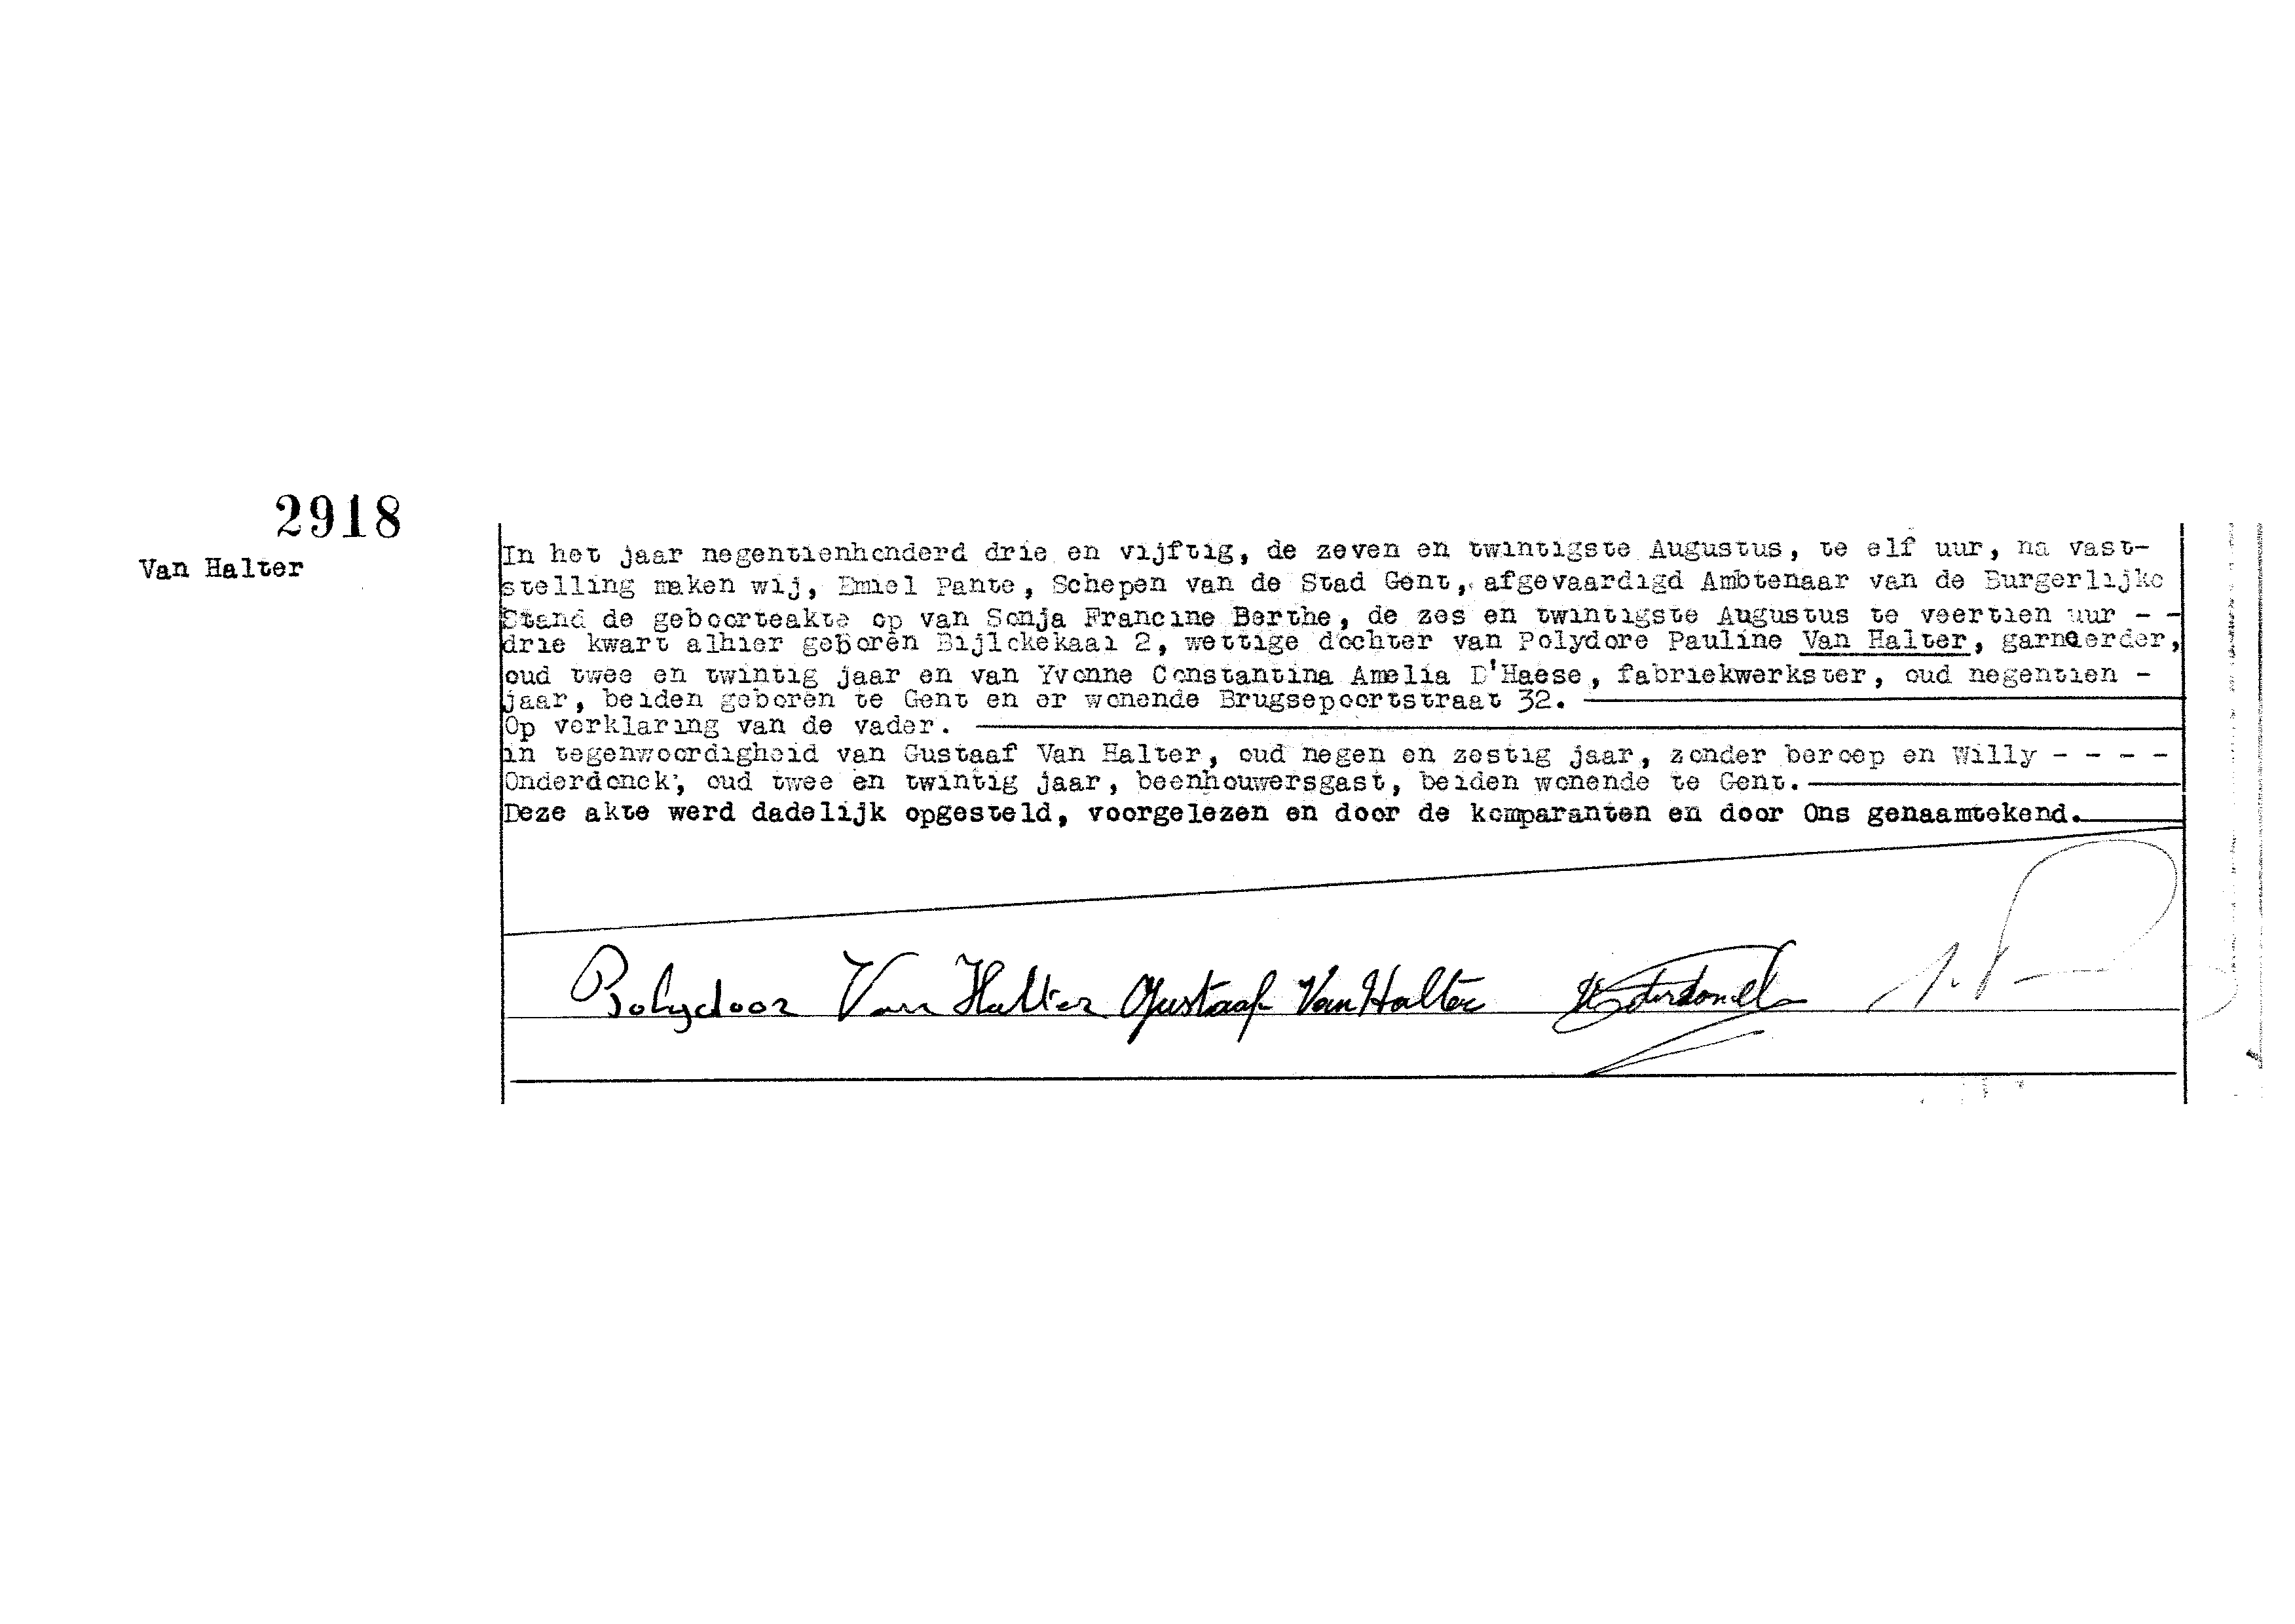 2918
Van Halter
In het jaar negentienhonderd drie en vijftig, de zeven en twintigste Augustus, te elf uur, na vast-
stelling maken wij, Emiel Pante, Schepen van de Stad Gent, afgevaardigd Ambtenaar van de Burgerlijke
Stand de geboorteakte op van Sonja Francine Berthe, de zes en twintigste Augustus te veertien uur - -
drie kwart alhier geboren Bijlokekaai 2, wettige dochter van Polydore Pauline Van Halter, garneerder,
oud twee en twintig jaar en van Yvonne Constantina Amelia D'Haese, fabriekwerkster, oud negentien -
jaar, beiden geboren te Gent en er wonende Brugsepoortstraat 32.
Op verklaring van de vader.
in tegenwoordigheid van Gustaaf Van Halter, oud negen en zestig jaar, zonder beroep en Willy - - - -
Onderdonck, oud twee en twintig jaar, beenhouwersgast, beiden wonende te Gent.
Deze akte werd dadelijk opgesteld, voorgelezen en door de komparanten en door Ons genaamtekend.
Polydoor Van Halter Gustaaf Van Halter